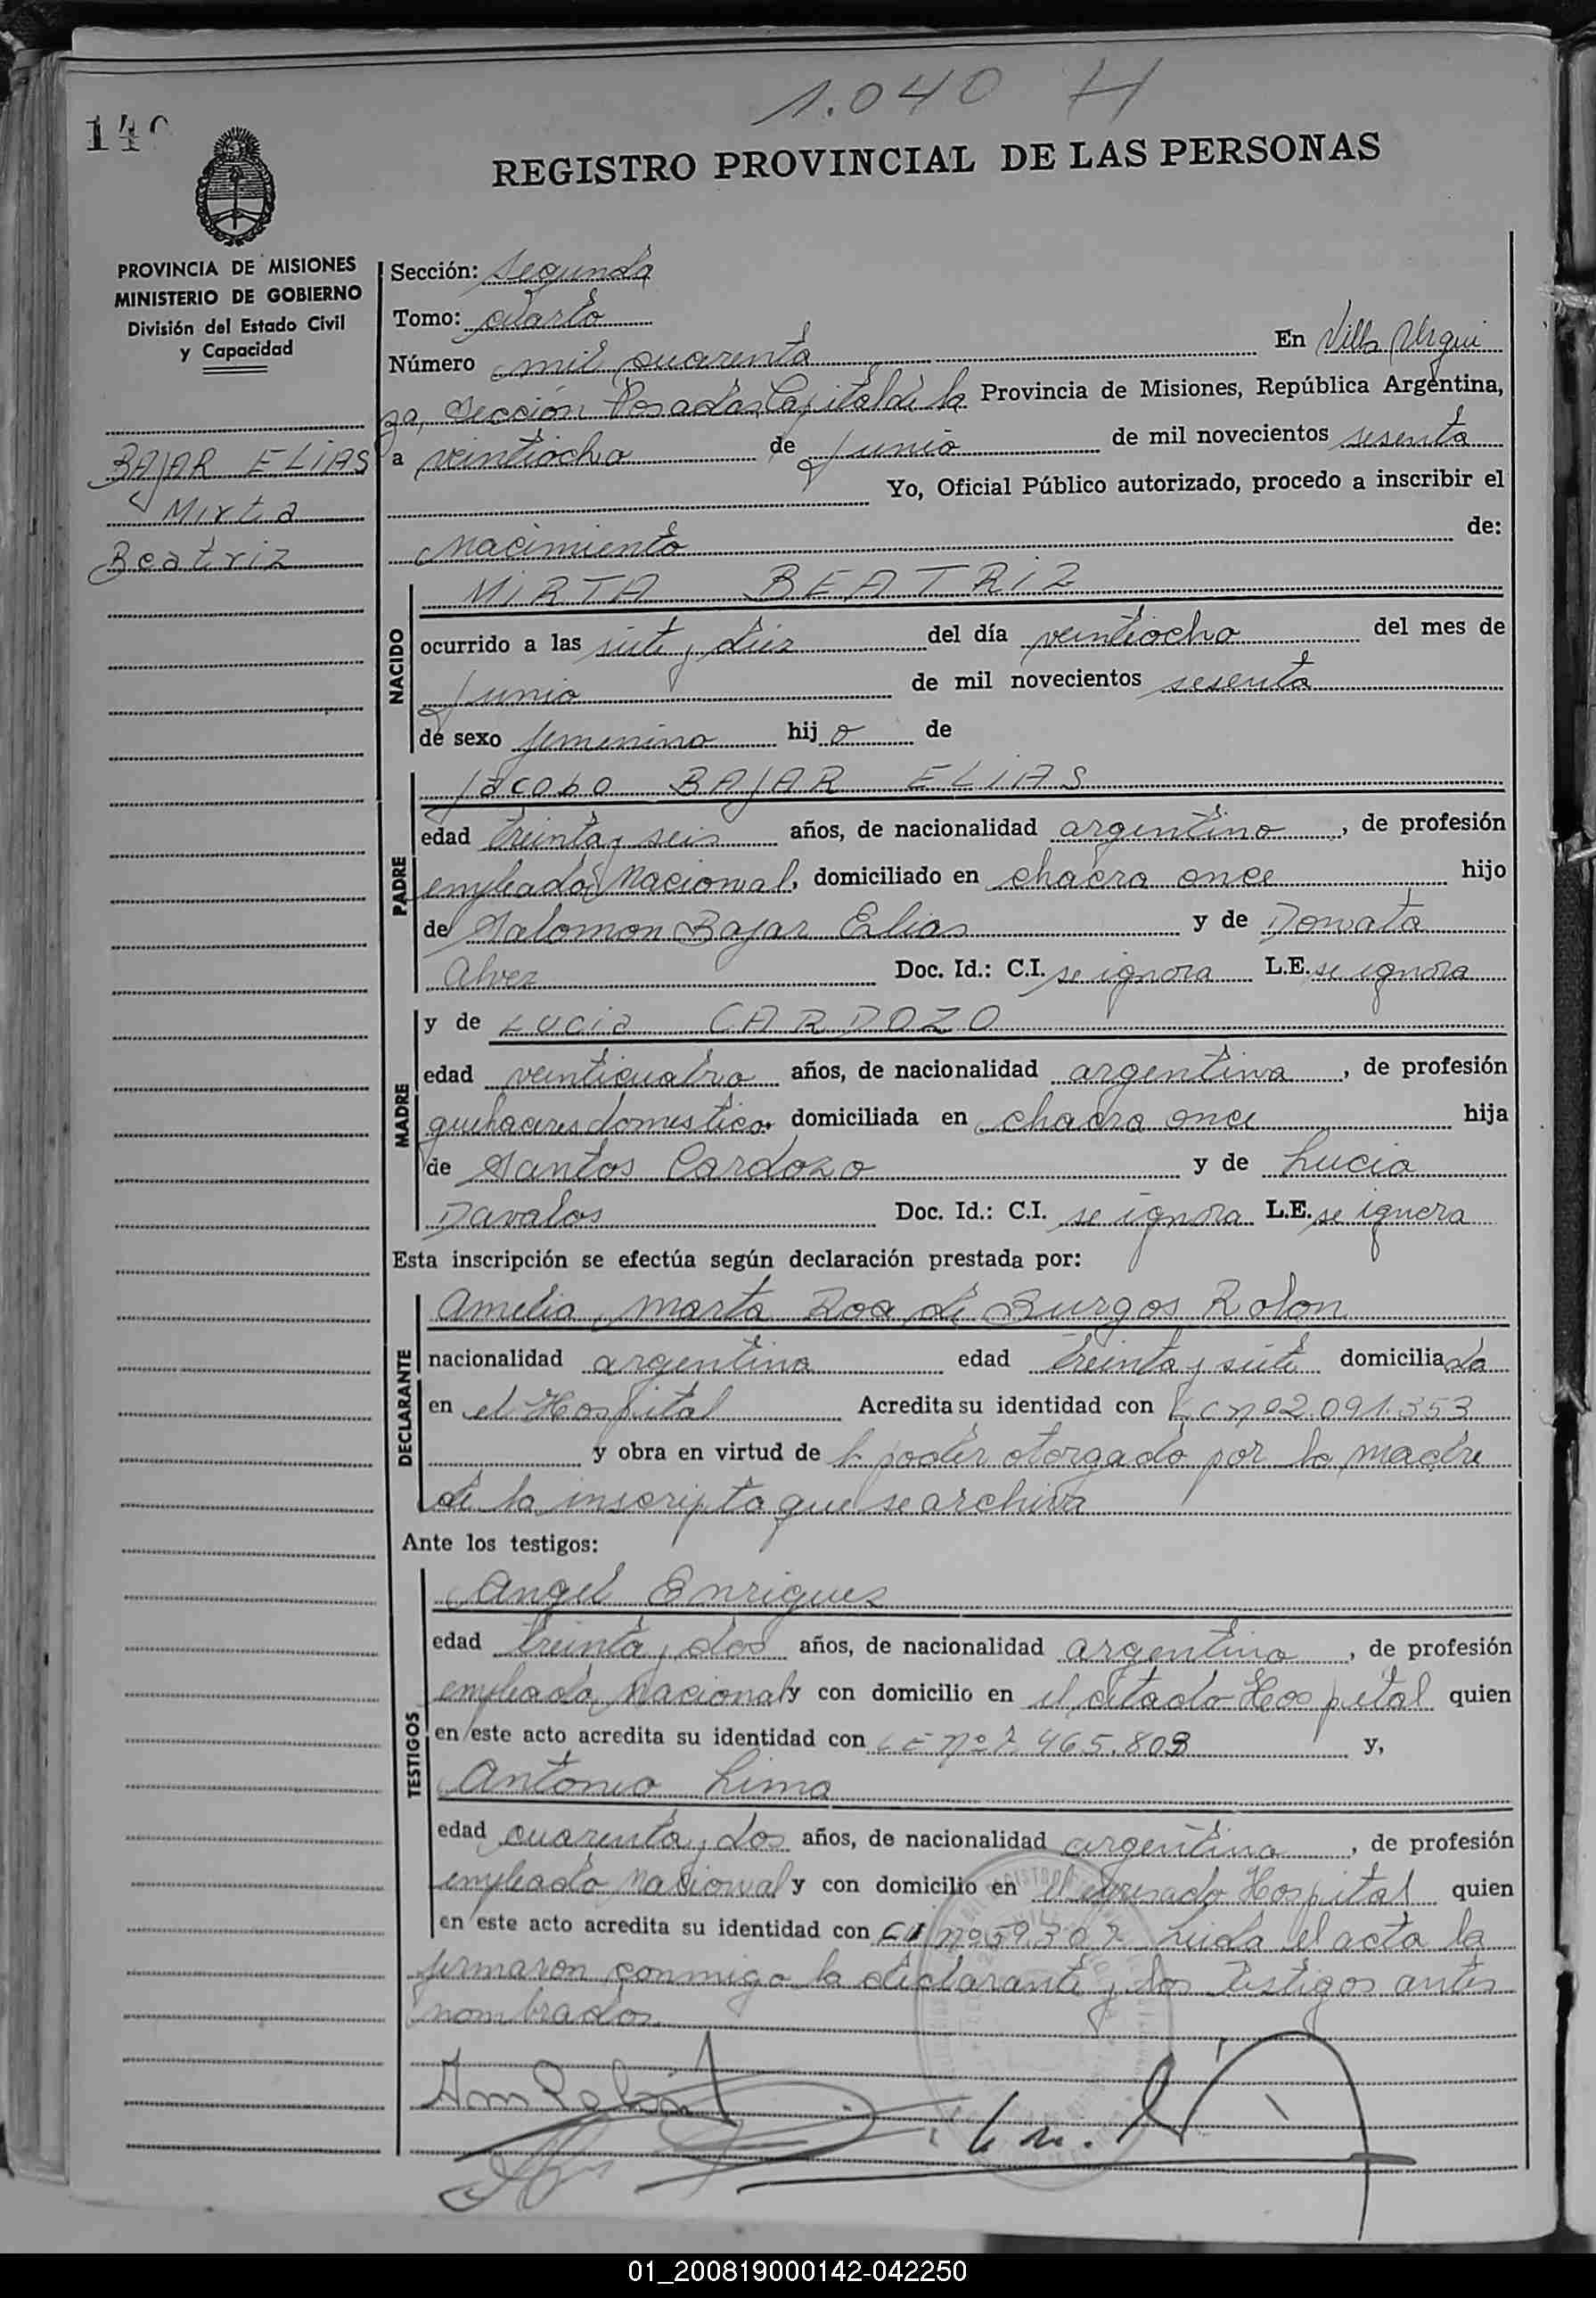 1.040 H
140
REGISTRO PROVINCIAL DE LAS PERSONAS
PROVINCIA DE MISIONES
MINISTERIO DE GOBIERNO
División del Estado Civil
y Capacidad
BAJAR ELIAS
Mirta
Beatriz
Sección: Segunda
Tomo: cuarto
Número mil cuarenta En Villa Urqui
za, Sección Posadas, Capital de la Provincia de Misiones, República Argentina,
a veintiocho de Junio de mil novecientos sesenta
Yo, Oficial Público autorizado, procedo a inscribir el
Nacimiento de:
NACIDO
MIRTA BEATRIZ
ocurrido a las siete y diez del día veintiocho del mes de
Junio de mil novecientos sesenta
de sexo femenino hija de
PADRE
Jacobo BAJAR ELIAS
edad treinta y seis años, de nacionalidad argentino, de profesión
empleado Nacional, domiciliado en chacra once hijo
de Salomon Bajar Elias y de Donata
Alvez Doc. Id.: C.I. se ignora L.E. se ignora
MADRE
y de Lucia CARDOZO
edad veinticuatro años, de nacionalidad argentina, de profesión
quehaceres domesticos domiciliada en chacra once hija
de Santos Cardozo y de Lucia
Davalos Doc. Id.: C.I. se ignora L.E. se ignora
Esta inscripción se efectúa según declaración prestada por:
DECLARANTE
Amelia Marta Roa de Burgos Rolon
nacionalidad argentina edad treinta y siete domiciliada
en el Hospital Acredita su identidad con LC nº 2.091.353
y obra en virtud de poder otorgado por la madre
de la inscripta que se archiva
Ante los testigos:
TESTIGOS
Angel Enriquez
edad treinta y dos años, de nacionalidad argentina, de profesión
empleado Nacional y con domicilio en el citado Hospital quien
en este acto acredita su identidad con LE nº 7.465.808 y,
Antonio Lima
edad cuarenta y dos años, de nacionalidad argentina, de profesión
empleado Nacional y con domicilio en el Hospital quien
en este acto acredita su identidad con nº 59.307 Leida el acta la
firmaron conmigo la declarante y los testigos antes
nombrados.
01_200819000142-042250